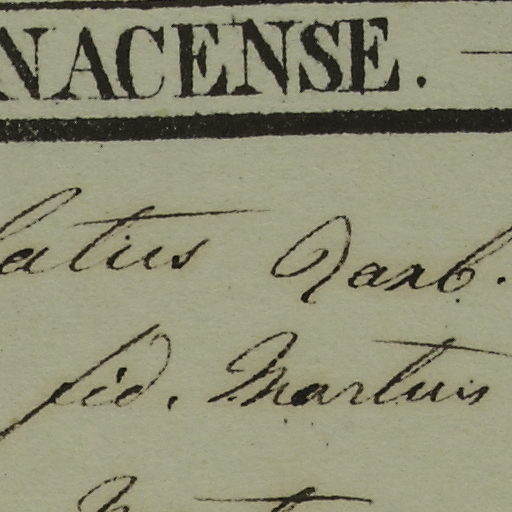 NACENSE.
latus Raxb.
fid. Martius